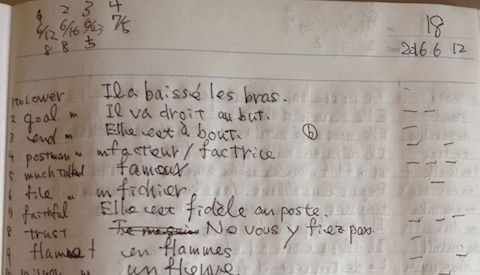 1 2 3 4
6/12 6/16 6/23 7/5
8 8 5
No. 18
Date 2016 6 12
1 to Lower Il a baissé les bras.
2 goal m Il va droit au but.
3 end m Elle est à bout. b
4 postman m facteur / factrice
5 much talked fameux
6 file m fichier
7 faithful Elle est fidèle au poste.
8 trust Ne vous y fiez pas
9 flamme f en flammes
un fleuve